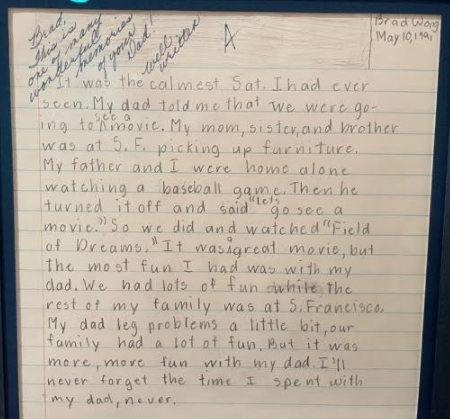 Brad,
This is
one of many
wonderful
memories
of your
Dad!
well
written
A
Brad Wong
May 10, 1991
It was the calmest Sat. I had ever
seen. My dad told me that we were go-
ing to see a movie. My mom, sister, and brother
was at S.F. picking up furniture.
My father and I were home alone
watching a baseball game. Then he
turned it off and said "let's go see a
movie." So we did and watched "Field
of Dreams." It was a great movie, but
the most fun I had was with my
dad. We had lots of fun while the
rest of my family was at S. Francisco.
My dad leg problems a little bit, our
family had a lot of fun. But it was
more, more fun with my dad. I'll
never forget the time I spent with
my dad, never.